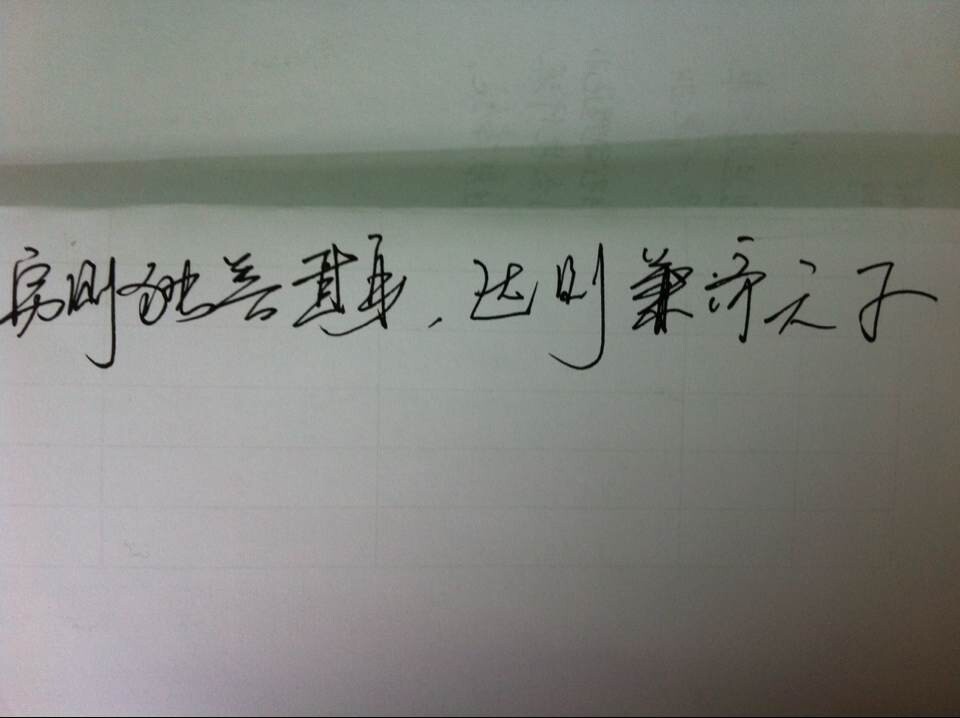 穷则独善其身,达则兼济天下